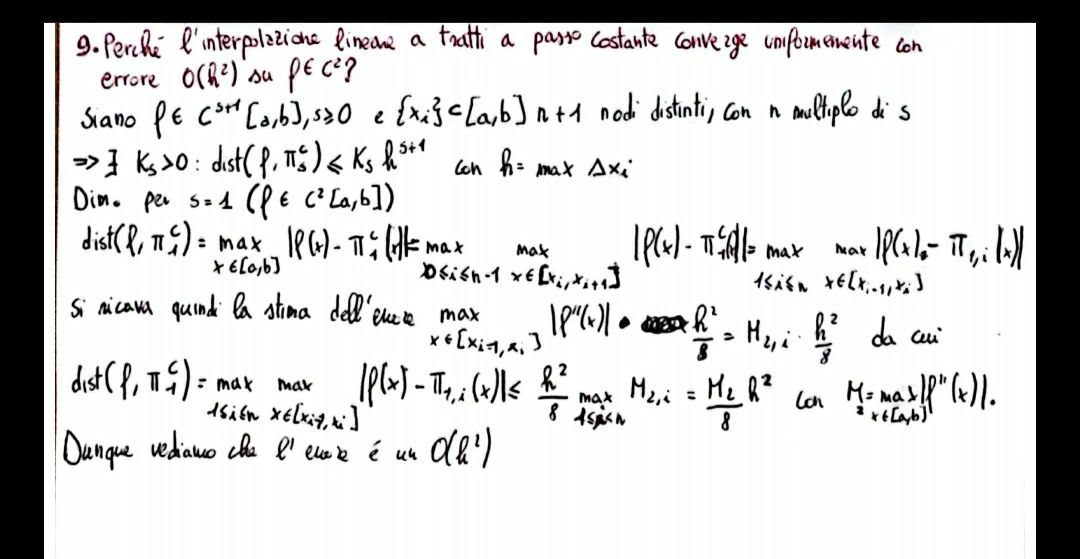 9. Perché l'interpolazione lineare a tratti a passo costante converge uniformemente con
errore O(h²) su f ∈ C²?
Siano f ∈ C^{s+1}[a,b], s≥0 e {x_i} ⊂ [a,b] n+1 nodi distinti, con n multiplo di s
=> ∃ K_s>0 : dist(f, π_s^c) ≤ K_s h^{s+1} con h = max Δx_i
Dim. per s=1 (f ∈ C²[a,b])
dist(f, π_1^c) = max_{x∈[a,b]} |f(x) - π_1^c(x)| = max_{0≤i≤n-1} max_{x∈[x_i, x_{i+1}]} |f(x) - π_1^c(x)| = max_{1≤i≤n} max_{x∈[x_{i-1}, x_i]} |f(x) - π_{1,i}(x)|
Si ricava quindi la stima dell'errore max_{x∈[x_{i-1}, x_i]} |f''(x)| · h²/8 = M_{2,i} · h²/8 da cui
dist(f, π_1^c) = max_{1≤i≤n} max_{x∈[x_{i-1}, x_i]} |f(x) - π_{1,i}(x)| ≤ h²/8 max_{1≤i≤n} M_{2,i} = M_2/8 h² con M_2 = max_{x∈[a,b]} |f''(x)|.
Dunque vediamo che l'errore é un O(h²)